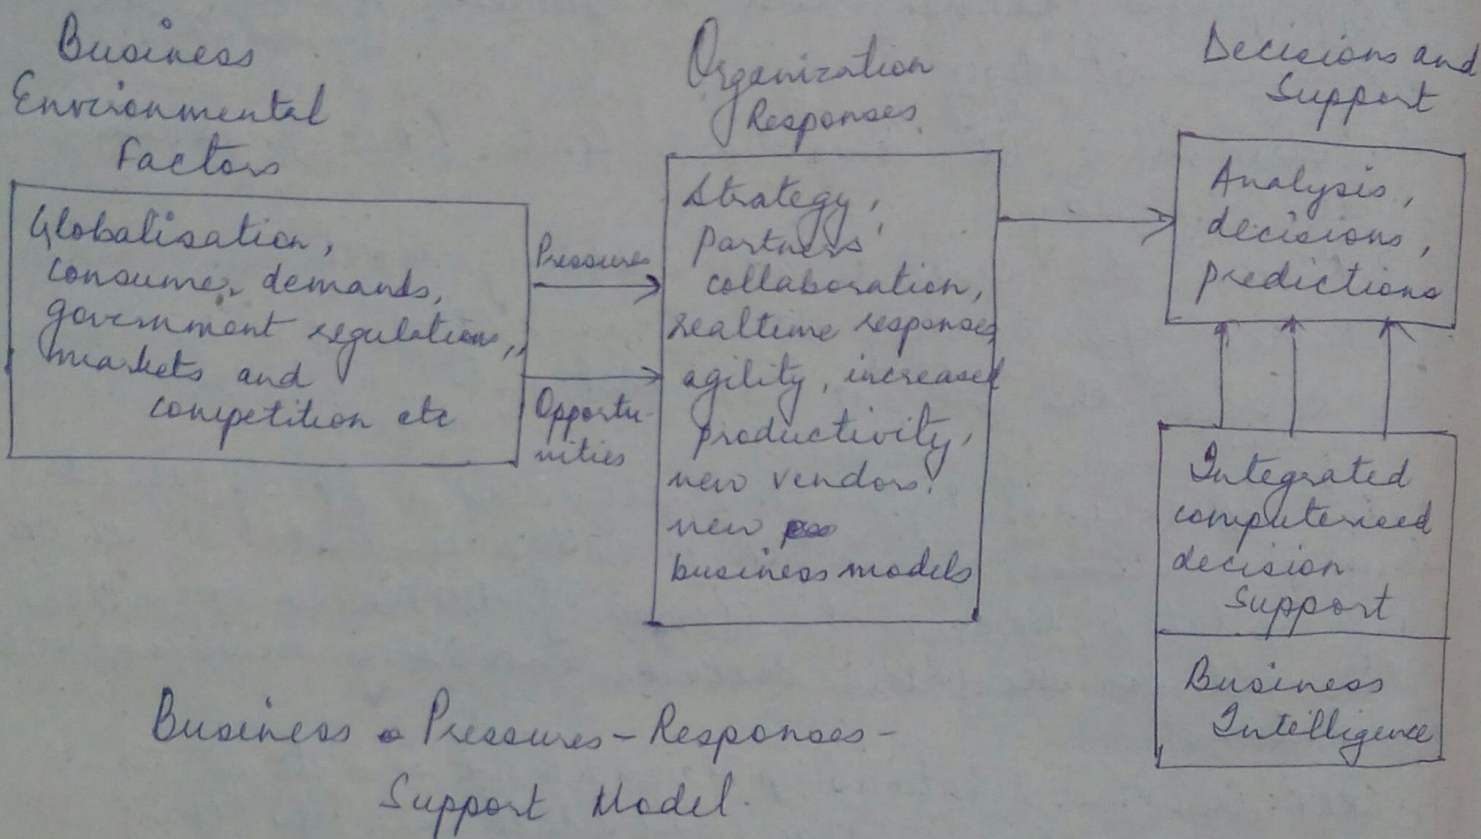 Business
Environmental
Factors
Globalisation,
consumer demands,
government regulations,
markets and
competition etc
Pressures
Opportu-
nities
Organization
Responses
Strategy,
partners'
collaboration,
realtime responses,
agility, increased
productivity,
new vendors,
new
business models
Decisions and
Support
Analysis,
decisions,
predictions
Integrated
computerized
decision
support
Business
Intelligence
Business - Pressures - Responses -
Support Model.